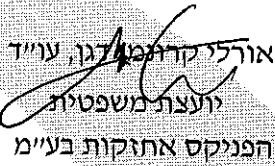 אורלי קרונמן דגן, עו״ד
יועצת משפטית
הפניקס אחזקות בע״מ